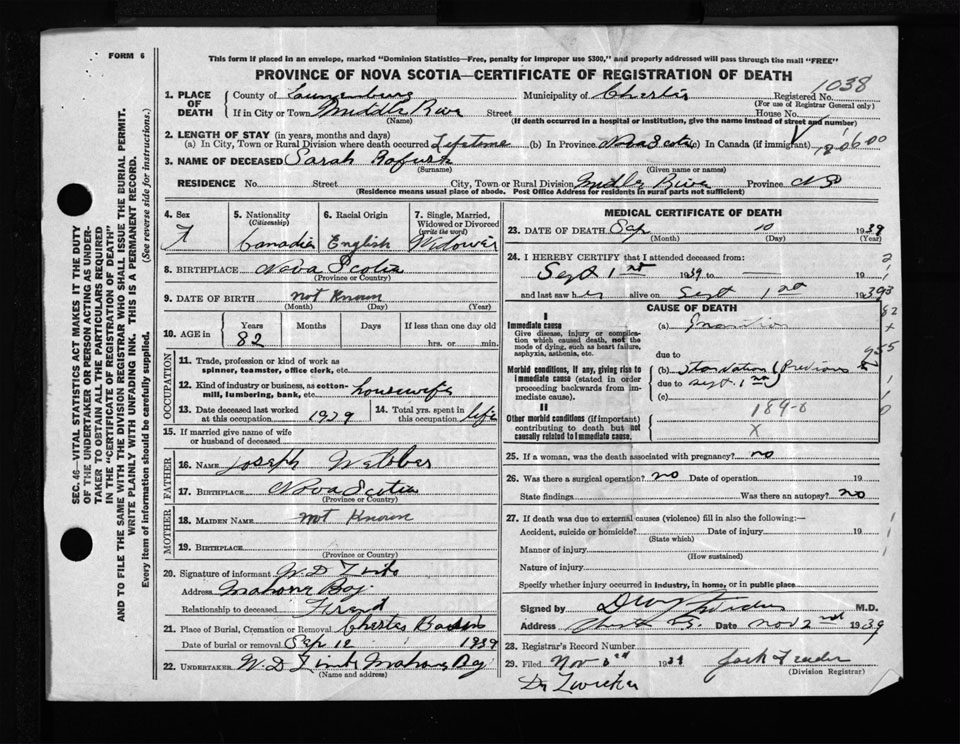 FORM 6
This form if placed in an envelope, marked "Dominion Statistics—Free, penalty for improper use $300," and properly addressed will pass through the mail "FREE"
PROVINCE OF NOVA SCOTIA—CERTIFICATE OF REGISTRATION OF DEATH
1038
1. PLACE OF DEATH County of Lunenburg Municipality of Chester Registered No.
(For use of Registrar General only)
If in City or Town Middle River Street House No.
(Name) (If death occurred in a hospital or institution, give the name instead of street and number)
2. LENGTH OF STAY (in years, months and days)
(a) In City, Town or Rural Division where death occurred Lifetime (b) In Province Nova Scotia (c) In Canada (if immigrant)
3. NAME OF DECEASED Sarah
(Surname) (Given name or names)
RESIDENCE No. Street City, Town or Rural Division Middle River Province NS
(Residence means usual place of abode. Post Office Address for residents in rural parts not sufficient)
4. Sex F
5. Nationality (Citizenship) Canadian
6. Racial Origin English
7. Single, Married, Widowed or Divorced (write the word) Widower
8. BIRTHPLACE Nova Scotia
(Province or Country)
9. DATE OF BIRTH not Known
(Month) (Day) (Year)
10. AGE in Years Months Days If less than one day old
82 hrs. or min.
OCCUPATION
11. Trade, profession or kind of work as spinner, teamster, office clerk, etc.
12. Kind of industry or business, as cotton-mill, lumbering, bank, etc. housewife
13. Date deceased last worked at this occupation 1929
14. Total yrs. spent in this occupation life
15. If married give name of wife or husband of deceased
FATHER
16. NAME Joseph Webber
17. BIRTHPLACE Nova Scotia
(Province or Country)
MOTHER
18. MAIDEN NAME not Known
19. BIRTHPLACE
(Province or Country)
20. Signature of informant W. D.
Address Mahone Bay
Relationship to deceased Friend
21. Place of Burial, Cremation or Removal Chester
Date of burial or removal Sep 12 1939
22. UNDERTAKER W. D. Mahone Bay
(Name and address)
MEDICAL CERTIFICATE OF DEATH
23. DATE OF DEATH Sep 10 1939
(Month) (Day) (Year)
24. I HEREBY CERTIFY that I attended deceased from:
Sept 1st 1939 to 19
and last saw her alive on Sept 1st 1939
CAUSE OF DEATH
I
Immediate cause
Give disease, injury or complication which caused death, not the mode of dying, such as heart failure, asphyxia, asthenia, etc.
(a) Inanition
due to
Morbid conditions, if any, giving rise to immediate cause (stated in order proceeding backwards from immediate cause).
(b) Starvation (Previous to
due to Sept. 1st)
(c)
II
Other morbid conditions (if important) contributing to death but not causally related to immediate cause.
X
25. If a woman, was the death associated with pregnancy? no
26. Was there a surgical operation? no Date of operation 19
State findings Was there an autopsy? no
27. If death was due to external causes (violence) fill in also the following:—
Accident, suicide or homicide? Date of injury 19
(State which)
Manner of injury
(How sustained)
Nature of injury
Specify whether injury occurred in industry, in home, or in public place
Signed by M.D.
Address Date Nov 2nd 1939
28. Registrar's Record Number
29. Filed Nov 1939 Jack
(Division Registrar)
Dr Zwicker
SEC. 46—VITAL STATISTICS ACT MAKES IT THE DUTY
OF THE UNDERTAKER OR PERSON ACTING AS UNDER-
TAKER TO OBTAIN ALL THE PARTICULARS REQUIRED
IN THE "CERTIFICATE OF REGISTRATION OF DEATH"
AND TO FILE THE SAME WITH THE DIVISION REGISTRAR WHO SHALL ISSUE THE BURIAL PERMIT.
WRITE PLAINLY WITH UNFADING INK. THIS IS A PERMANENT RECORD.
Every item of information should be carefully supplied. (See reverse side for instructions.)